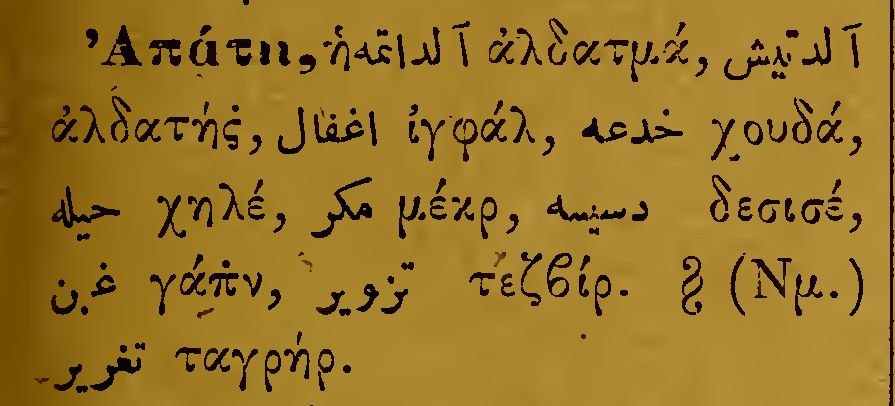 Ἀπάτη, ἡ آلداتمه ἀλδατμά, آلدتیش
ἀλδατήş̇, اغفال ἰγφάλ, خدعه χουδά,
حیله χηλέ, مكر μέκρ, دسیسه δεσισέ,
غبن γάπ̇ν, تزویر τεζβίρ. § (Νμ.)
تغریر ταγρήρ.